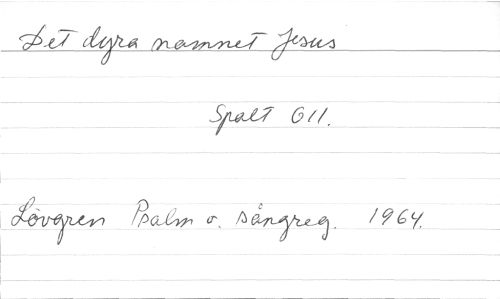 Det dyra namnet Jesus
Spalt 611.
Lövgren Psalm o. sångreg. 1964.